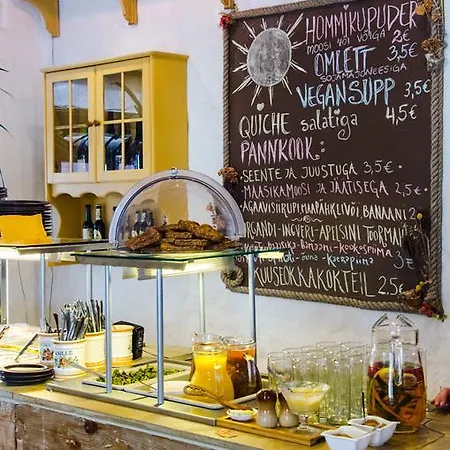 HOMMIKUPUDER
MOOSI VÕI VÕIGA 2€
OMLETT 3,5€
SOJAMAJONEESIGA
VEGANSUPP 3,5€
QUICHE salatiga 4,5€
PANNKOOK:
- SEENTE JA JUUSTUGA 3,5€
- MAASIKAMOOSI JA JÄÄTISEGA 2,5€
- AGAAVISIIRUPI, MAAPÄHKLIVÕI BANAANI 2
INGVERI-APELSINI TOORMA
- BANAANI - KOOKOSPIIMA
- KAERAPIIMA 3€
KUUSEOKKAKOKTEIL 2,5€